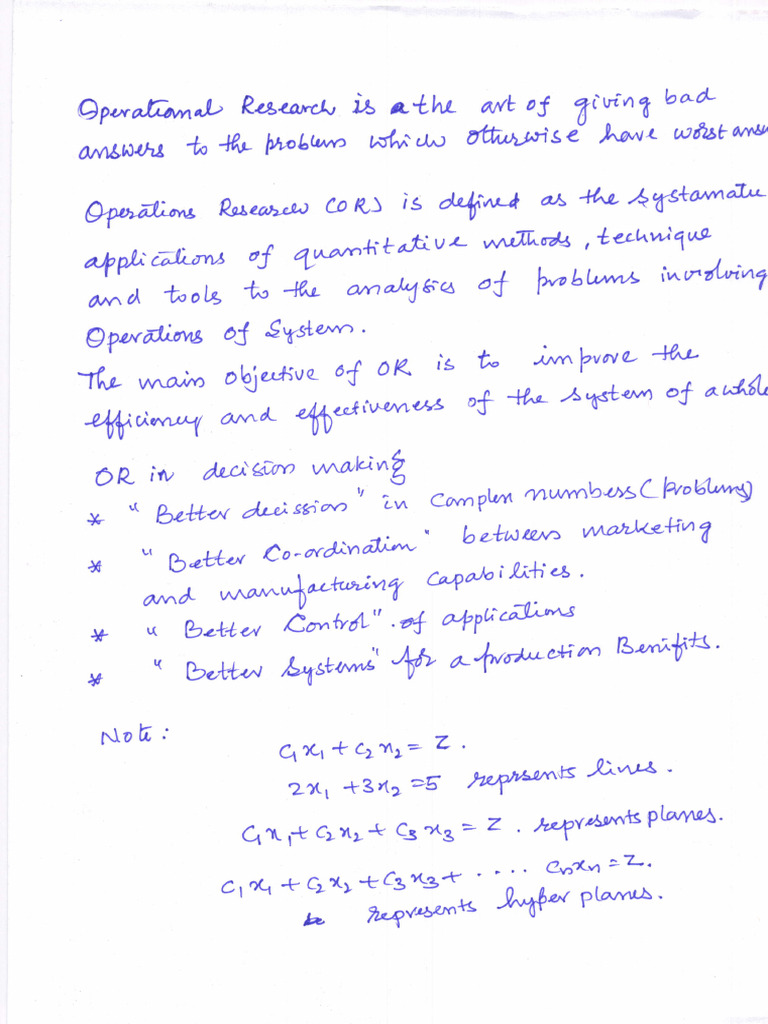 Operational Research is the art of giving bad
answers to the problem which otherwise have worst answ
Operations Research (OR) is defined as the systamatic
applications of quantitative methods, technique
and tools to the analysics of problems involving
Operations of System.
The main objective of OR is to improve the
efficiency and effectiveness of the system of a whole
OR in decision making
* "Better decission" in complex numbers (problems)
* "Better Co-ordination" between marketing
and manufacturing capabilities.
* "Better Control" of applications
* "Better Systems" for a production Benifits.
Note:
C₁x₁ + C₂x₂ = Z.
2x₁ + 3x₂ = 5 reprsents lines.
C₁x₁ + C₂x₂ + C₃x₃ = Z. represents planes.
C₁x₁ + C₂x₂ + C₃x₃ + .... Cₙxₙ = Z.
represents hyper planes.